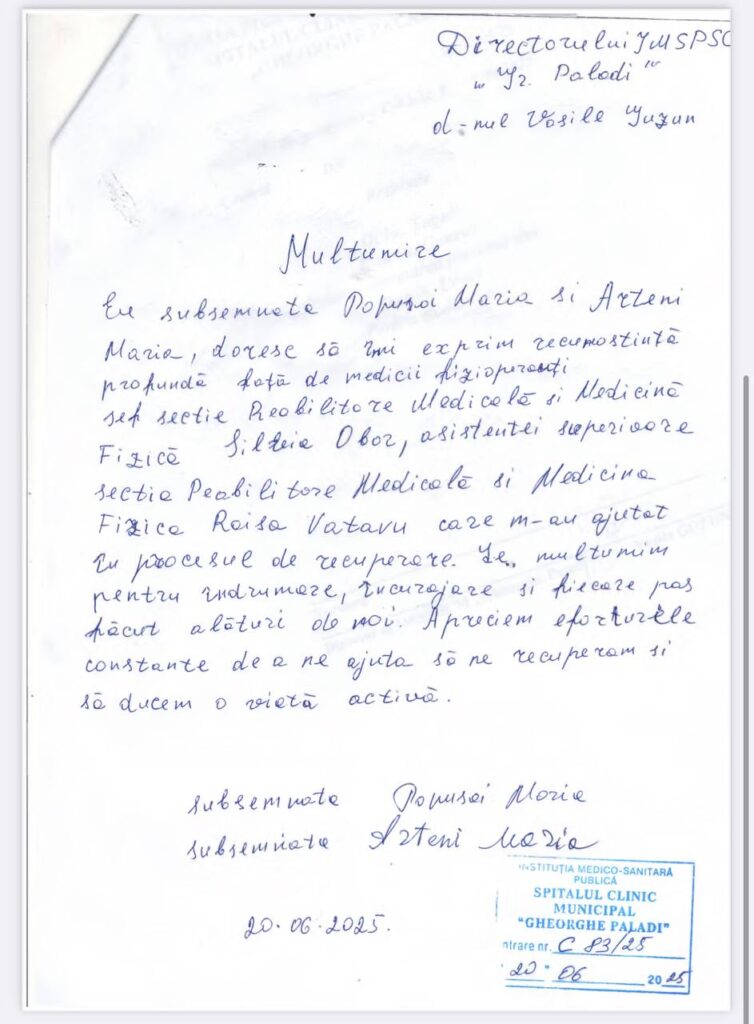 Directorului IMSPSC
"Gr. Paladi"
d-nul Vasile Guzun
Multumire
Eu subsemnata Popusoi Maria si Arteni
Maria, doresc să îmi exprim recunostință
profundă față de medicii fizioperauți
sef sectie Reabilitare Medicală si Medicină
Fizică Silvia Obor, asistentei superioare
sectia Reabilitare Medicală si Medicina
Fizica Raisa Vatavu care m-au ajutat
în procesul de recuperare. Le multumim
pentru indrumare, încurajare si fiecare pas
făcut alături de noi. Apreciem eforturele
constante de a ne ajuta să ne recuperam si
să ducem o viată activă.
subsemnata Popusoi Maria
subsemnata Arteni Maria
20.06.2025.
INSTITUȚIA MEDICO-SANITARĂ
PUBLICĂ
SPITALUL CLINIC
MUNICIPAL
"GHEORGHE PALADI"
ntrare nr. C 83/25
"20" 06 2025